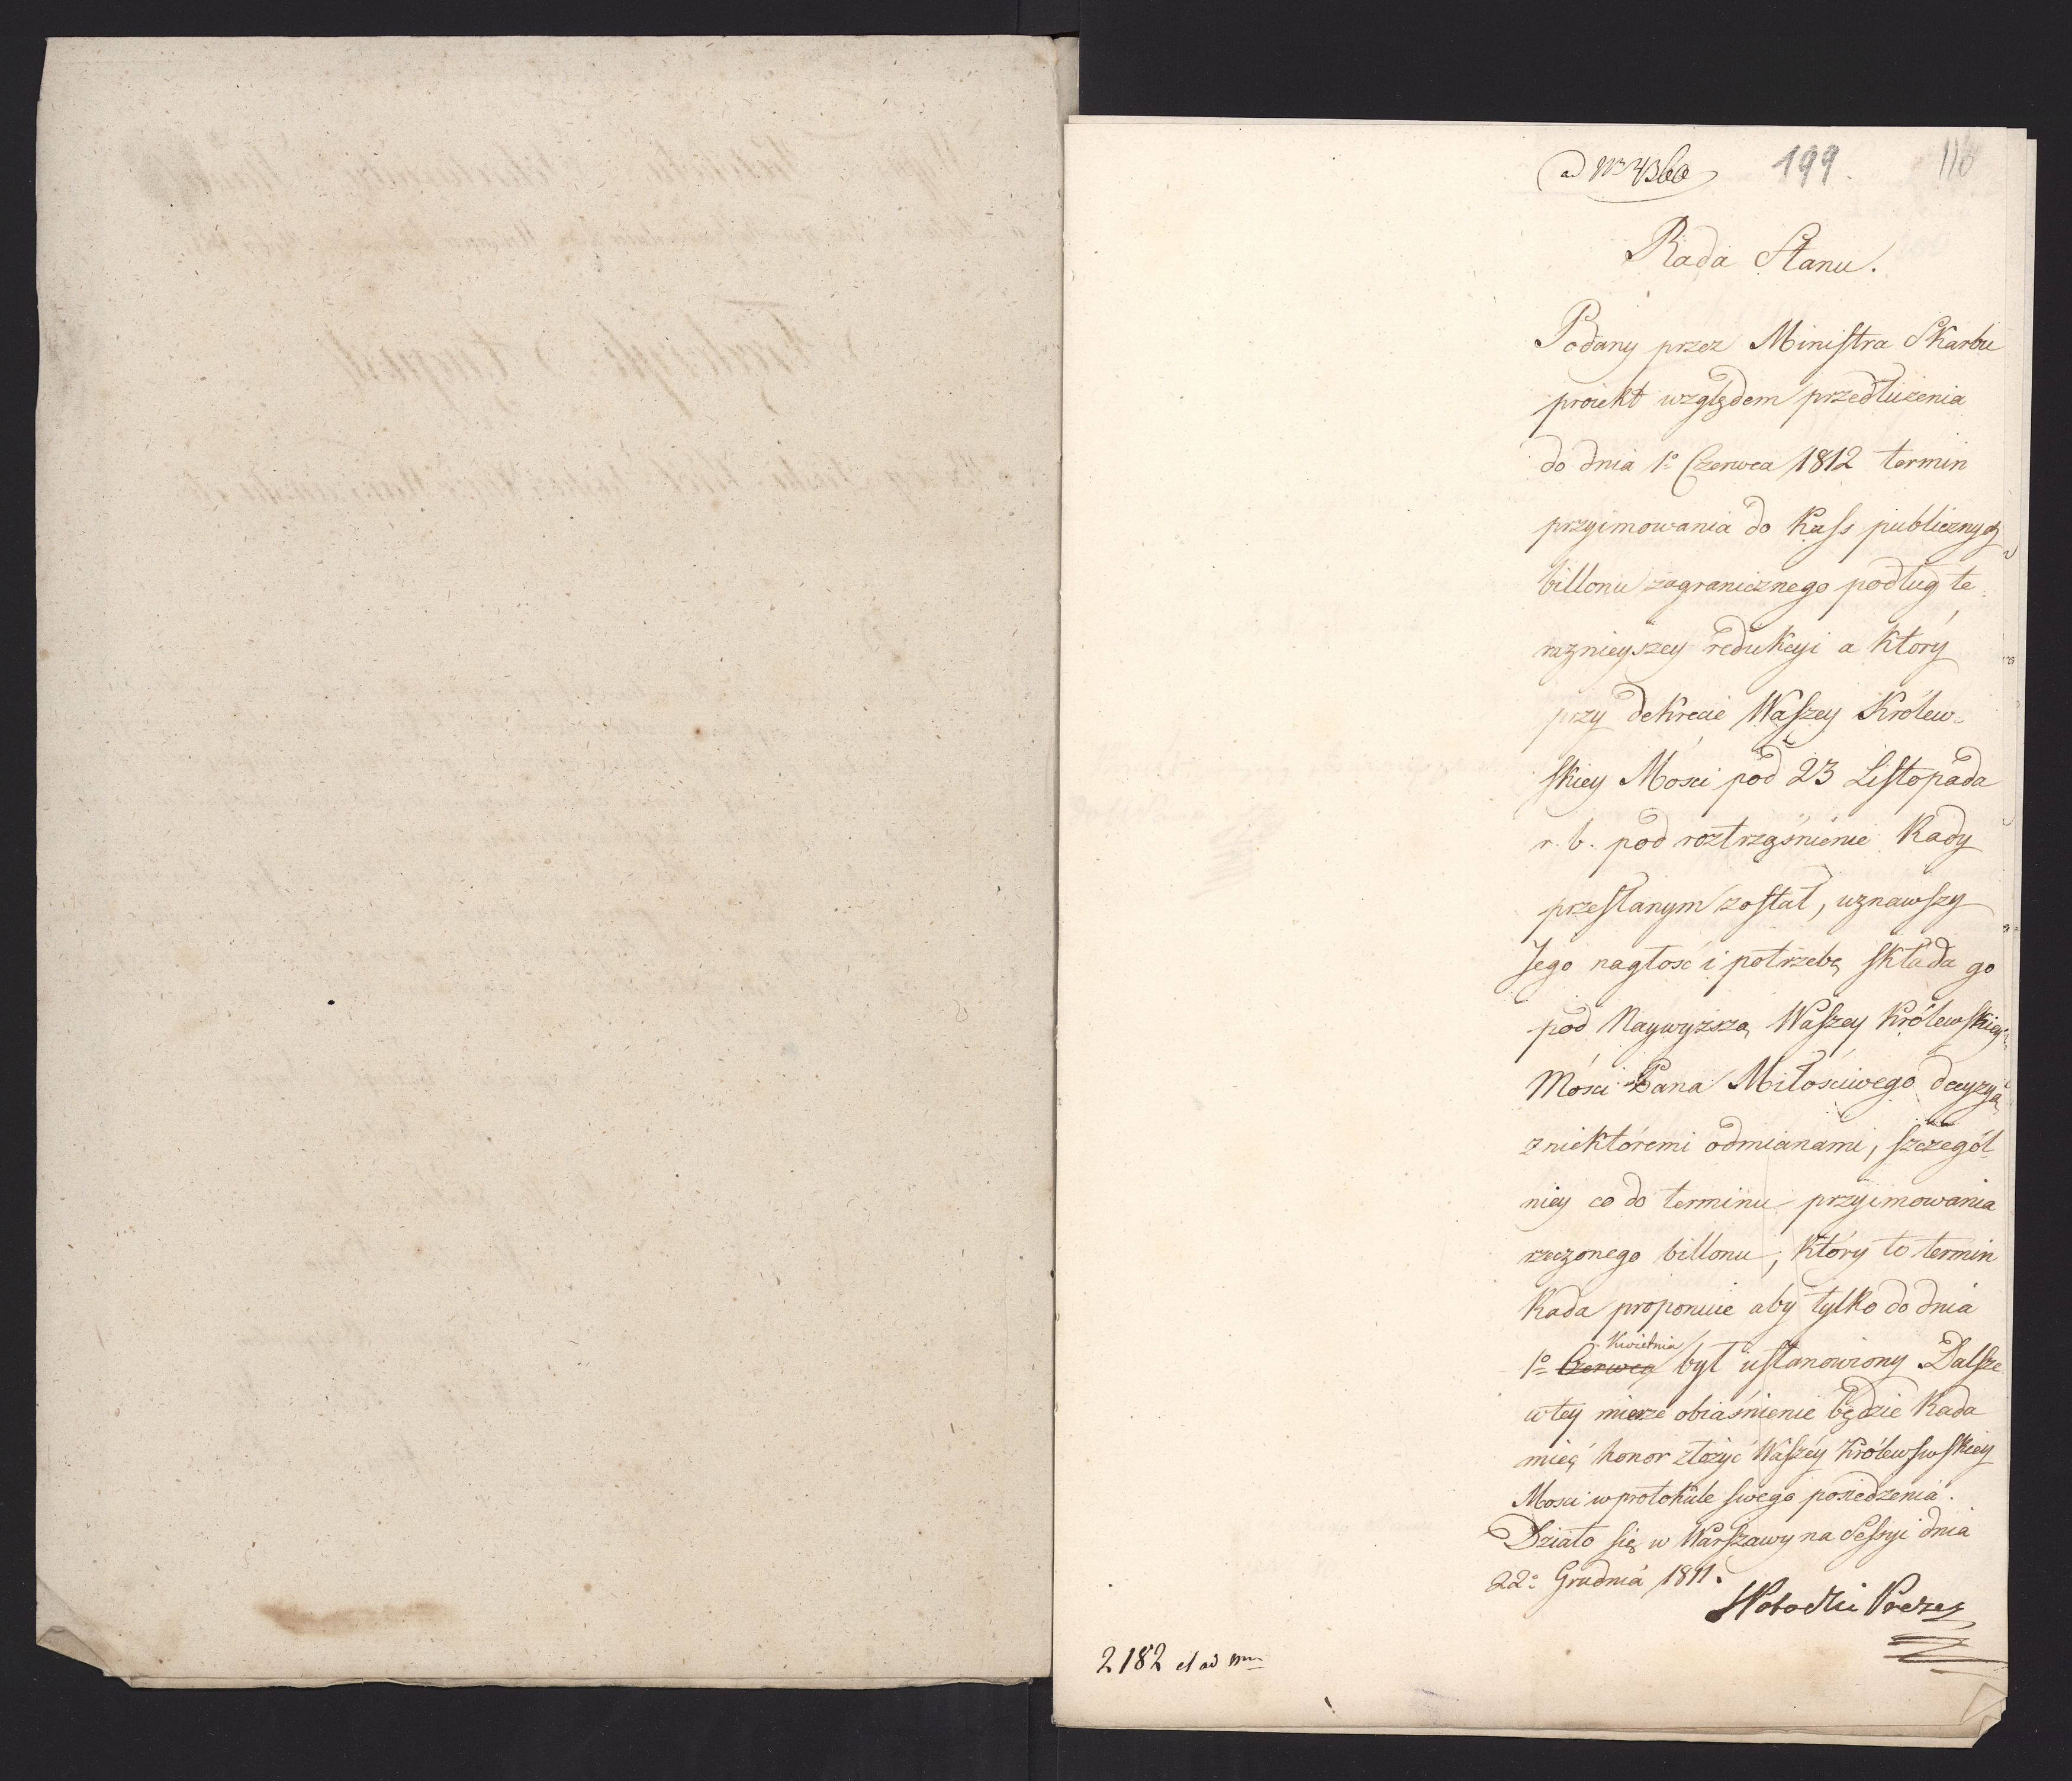 ad Nr 4360
199.
116
Rada Stanu.
Podany przez Ministra Skarbu
proiekt względem przedłużenia
do dnia 1o Czerwca 1812 termin
przyimowania do Kass publicznych
billonu zagranicznego podług te-
raznieyszey redukcyi a który
przy dekrecie Waszey Królew-
skiey Mości pod 23 Listopada
r. b. pod roztrząśnienie Rady
przesłanym został, uznawszy
Jego nagłość i potrzebę składa go
pod Naywyższą Waszey Królewskiey
Mości Pana Miłościwego decyzyą
z niektóremi odmianami, szczegól-
niey co do terminu przyimowania
rzeczonego billonu, który to termin
Rada proponuie aby tylko do dnia
Kwietnia
1o Czerwca był ustanowiony. Dalsze
w tey mierze obiaśnienie będzie Rada
mieć honor złożyć Waszéy Królewswskiey
Mosci w protokule swego posiedzenia.
Działo się w Warszawy na Sessyi dnia
22o Grudnia 1811.
SPotocki Prezes
2182 et ad